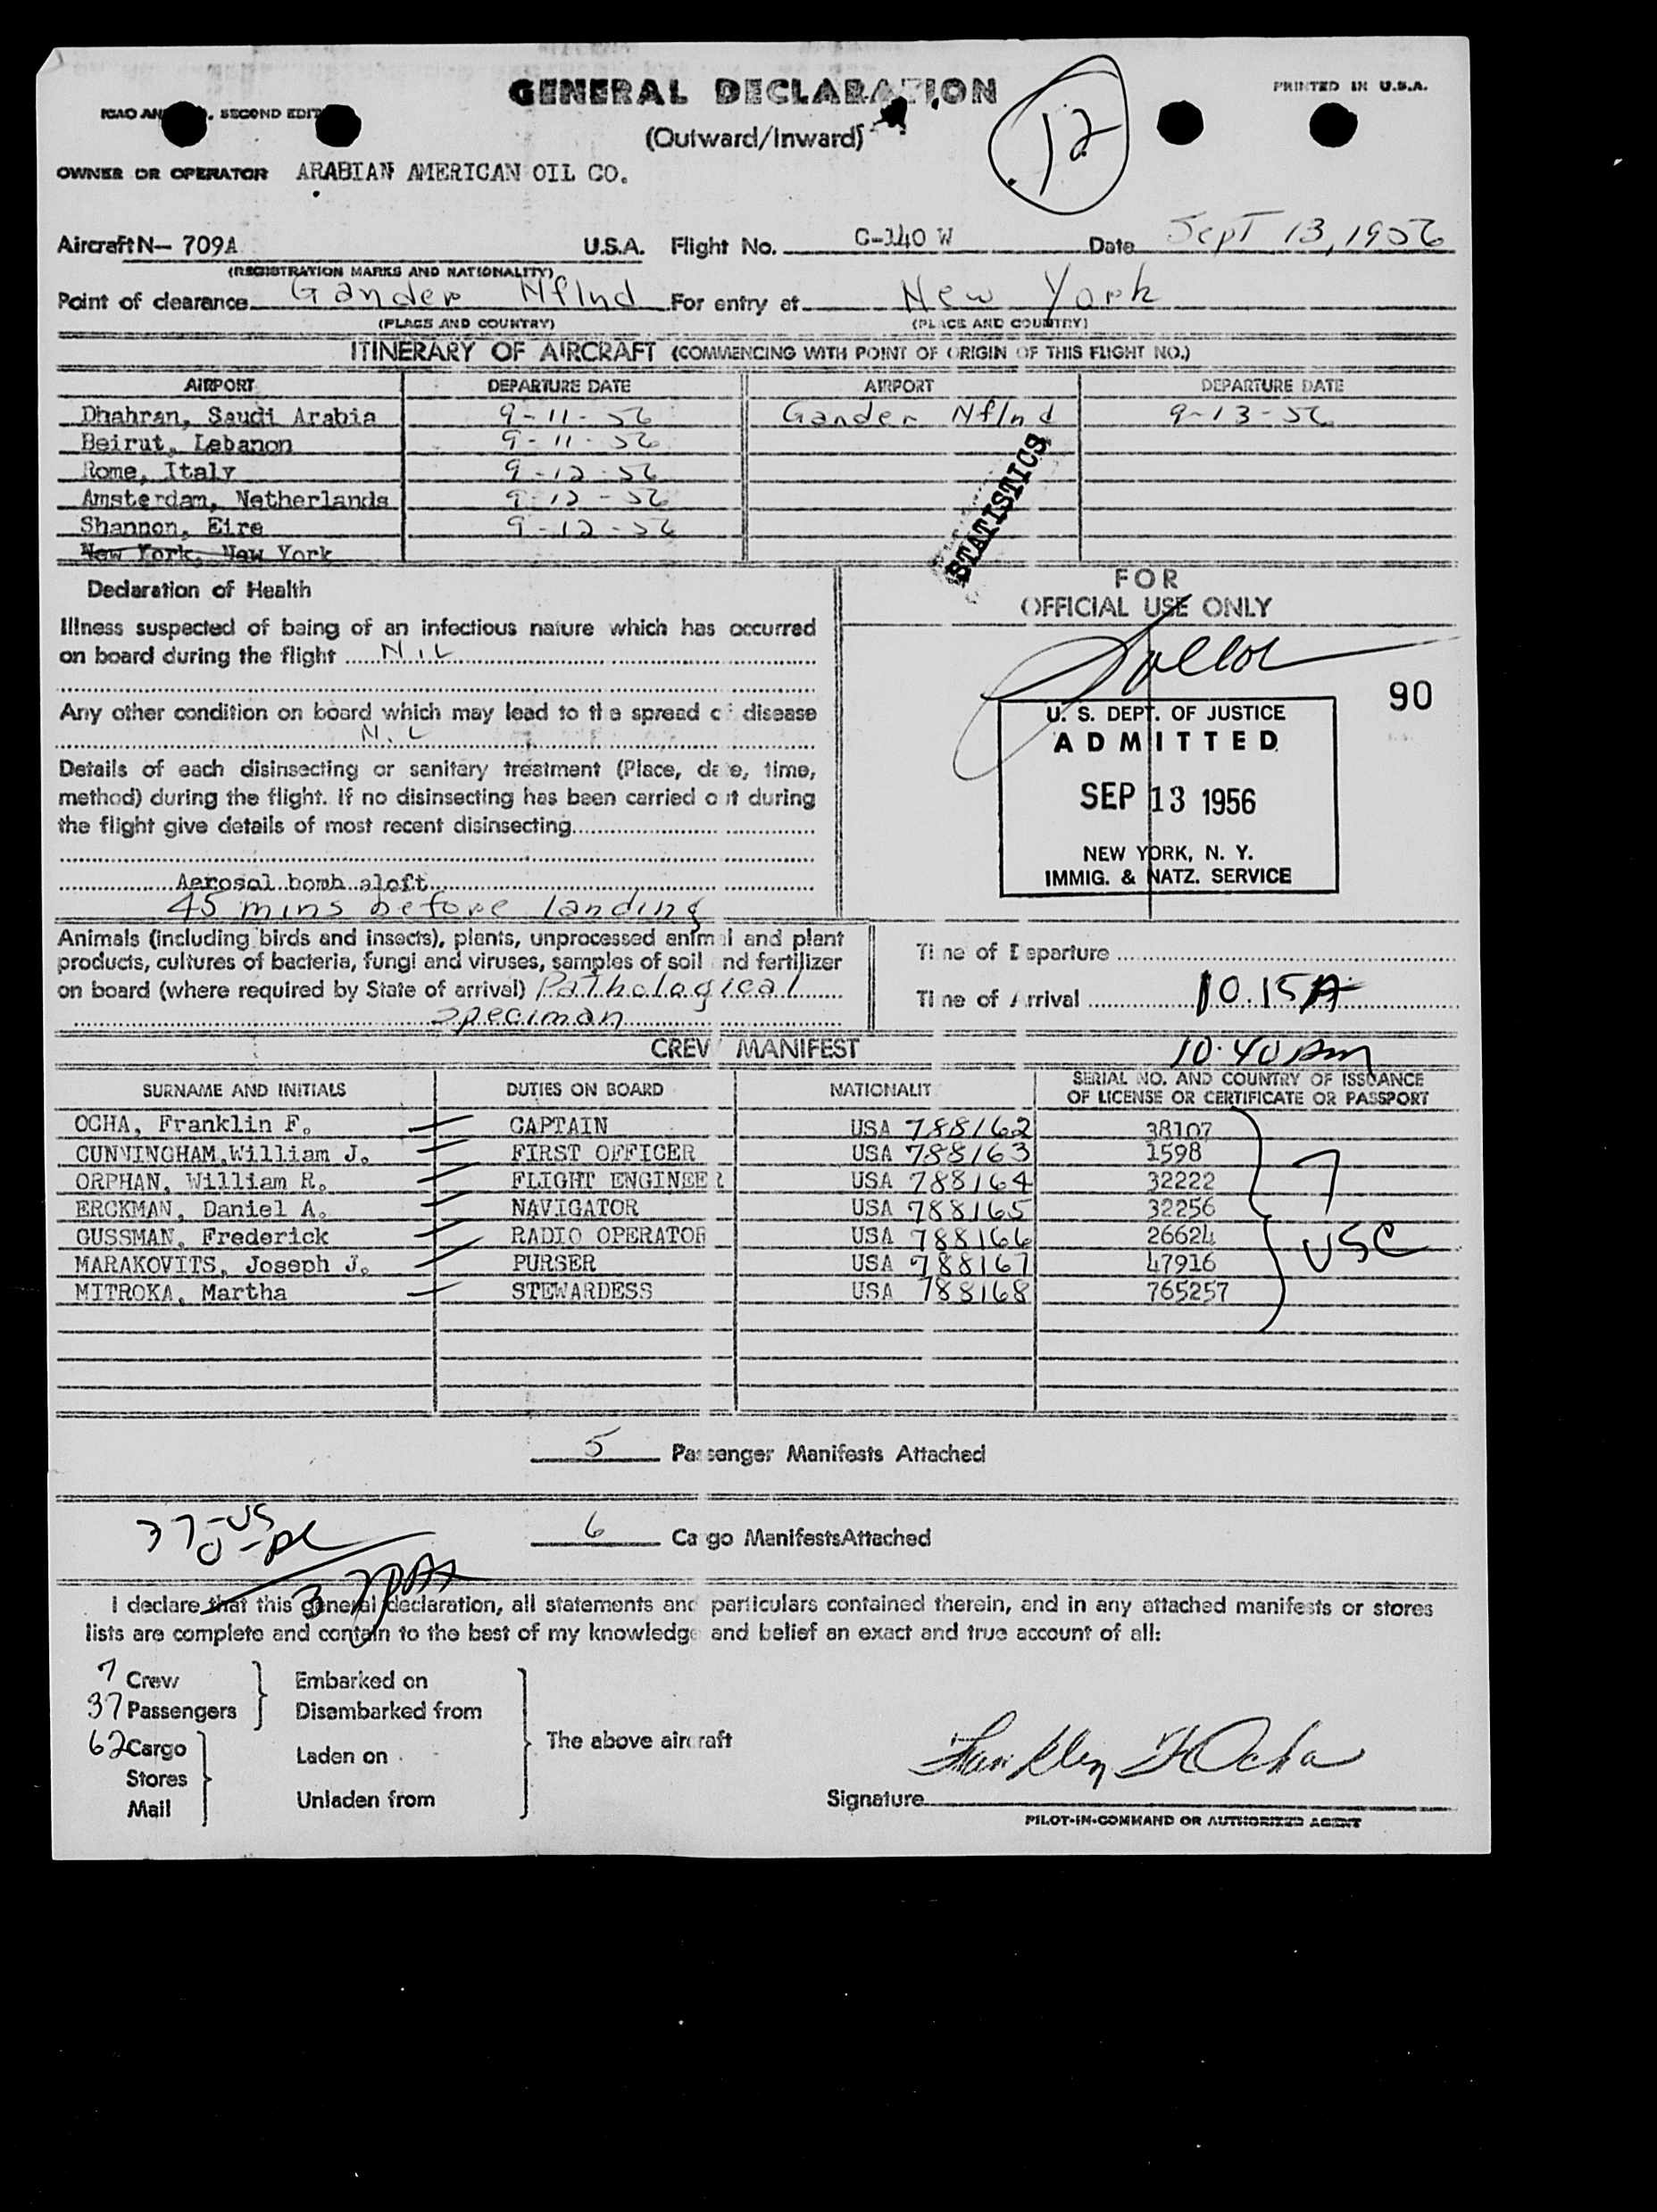 GENERAL DECLARATION
PRINTED IN U.S.A.
ICAO AN , SECOND EDIT
(Outward/Inward)
12
OWNER OR OPERATOR ARABIAN AMERICAN OIL CO.
Aircraft N- 709A U.S.A. Flight No. C-140 W Date Sept 13, 1956
(REGISTRATION MARKS AND NATIONALITY)
Point of clearance Gander Nflnd For entry at New York
(PLACE AND COUNTRY) (PLACE AND COUNTRY)
ITINERARY OF AIRCRAFT (COMMENCING WITH POINT OF ORIGIN OF THIS FLIGHT NO.)
AIRPORT DEPARTURE DATE AIRPORT DEPARTURE DATE
Dhahran, Saudi Arabia 9-11-56 Gander Nflnd 9-13-56
Beirut, Lebanon 9-11-56
Rome, Italy 9-12-56
Amsterdam, Netherlands 9-12-56
Shannon, Eire 9-12-56
New York, New York
STATISTICS
Declaration of Health
Illness suspected of being of an infectious nature which has occurred
on board during the flight NIL
Any other condition on board which may lead to the spread of disease
NIL
Details of each disinsecting or sanitary treatment (Place, date, time,
method) during the flight. If no disinsecting has been carried out during
the flight give details of most recent disinsecting
Aerosol bomb aloft
45 mins before landing
FOR
OFFICIAL USE ONLY
90
U. S. DEPT. OF JUSTICE
ADMITTED
SEP 13 1956
NEW YORK, N. Y.
IMMIG. & NATZ. SERVICE
Animals (including birds and insects), plants, unprocessed animal and plant
products, cultures of bacteria, fungi and viruses, samples of soil and fertilizer
on board (where required by State of arrival) Pathological
speciman
Time of Departure
Time of Arrival 10.15A
10.40 Am
CREW MANIFEST
SURNAME AND INITIALS DUTIES ON BOARD NATIONALIT SERIAL NO. AND COUNTRY OF ISSUANCE
OF LICENSE OR CERTIFICATE OR PASSPORT
OCHA, Franklin F. CAPTAIN USA 788162 38107
CUNNINGHAM, William J. FIRST OFFICER USA 788163 1598
ORPHAN, William R. FLIGHT ENGINEER USA 788164 32222
ERCKMAN, Daniel A. NAVIGATOR USA 788165 32256
GUSSMAN, Frederick RADIO OPERATOR USA 788166 26624
MARAKOVITS, Joseph J. PURSER USA 788167 47916
MITROKA, Martha STEWARDESS USA 788168 765257
7
USC
5 Passenger Manifests Attached
37-US
0-
6 Cargo Manifests Attached
37 PAX
I declare that this general declaration, all statements and particulars contained therein, and in any attached manifests or stores
lists are complete and contain to the best of my knowledge and belief an exact and true account of all:
7 Crew Embarked on
37 Passengers Disembarked from
62 Cargo Laden on
The above aircraft
Stores
Mail Unladen from
Franklin F Ocha
Signature
PILOT-IN-COMMAND OR AUTHORIZED AGENT